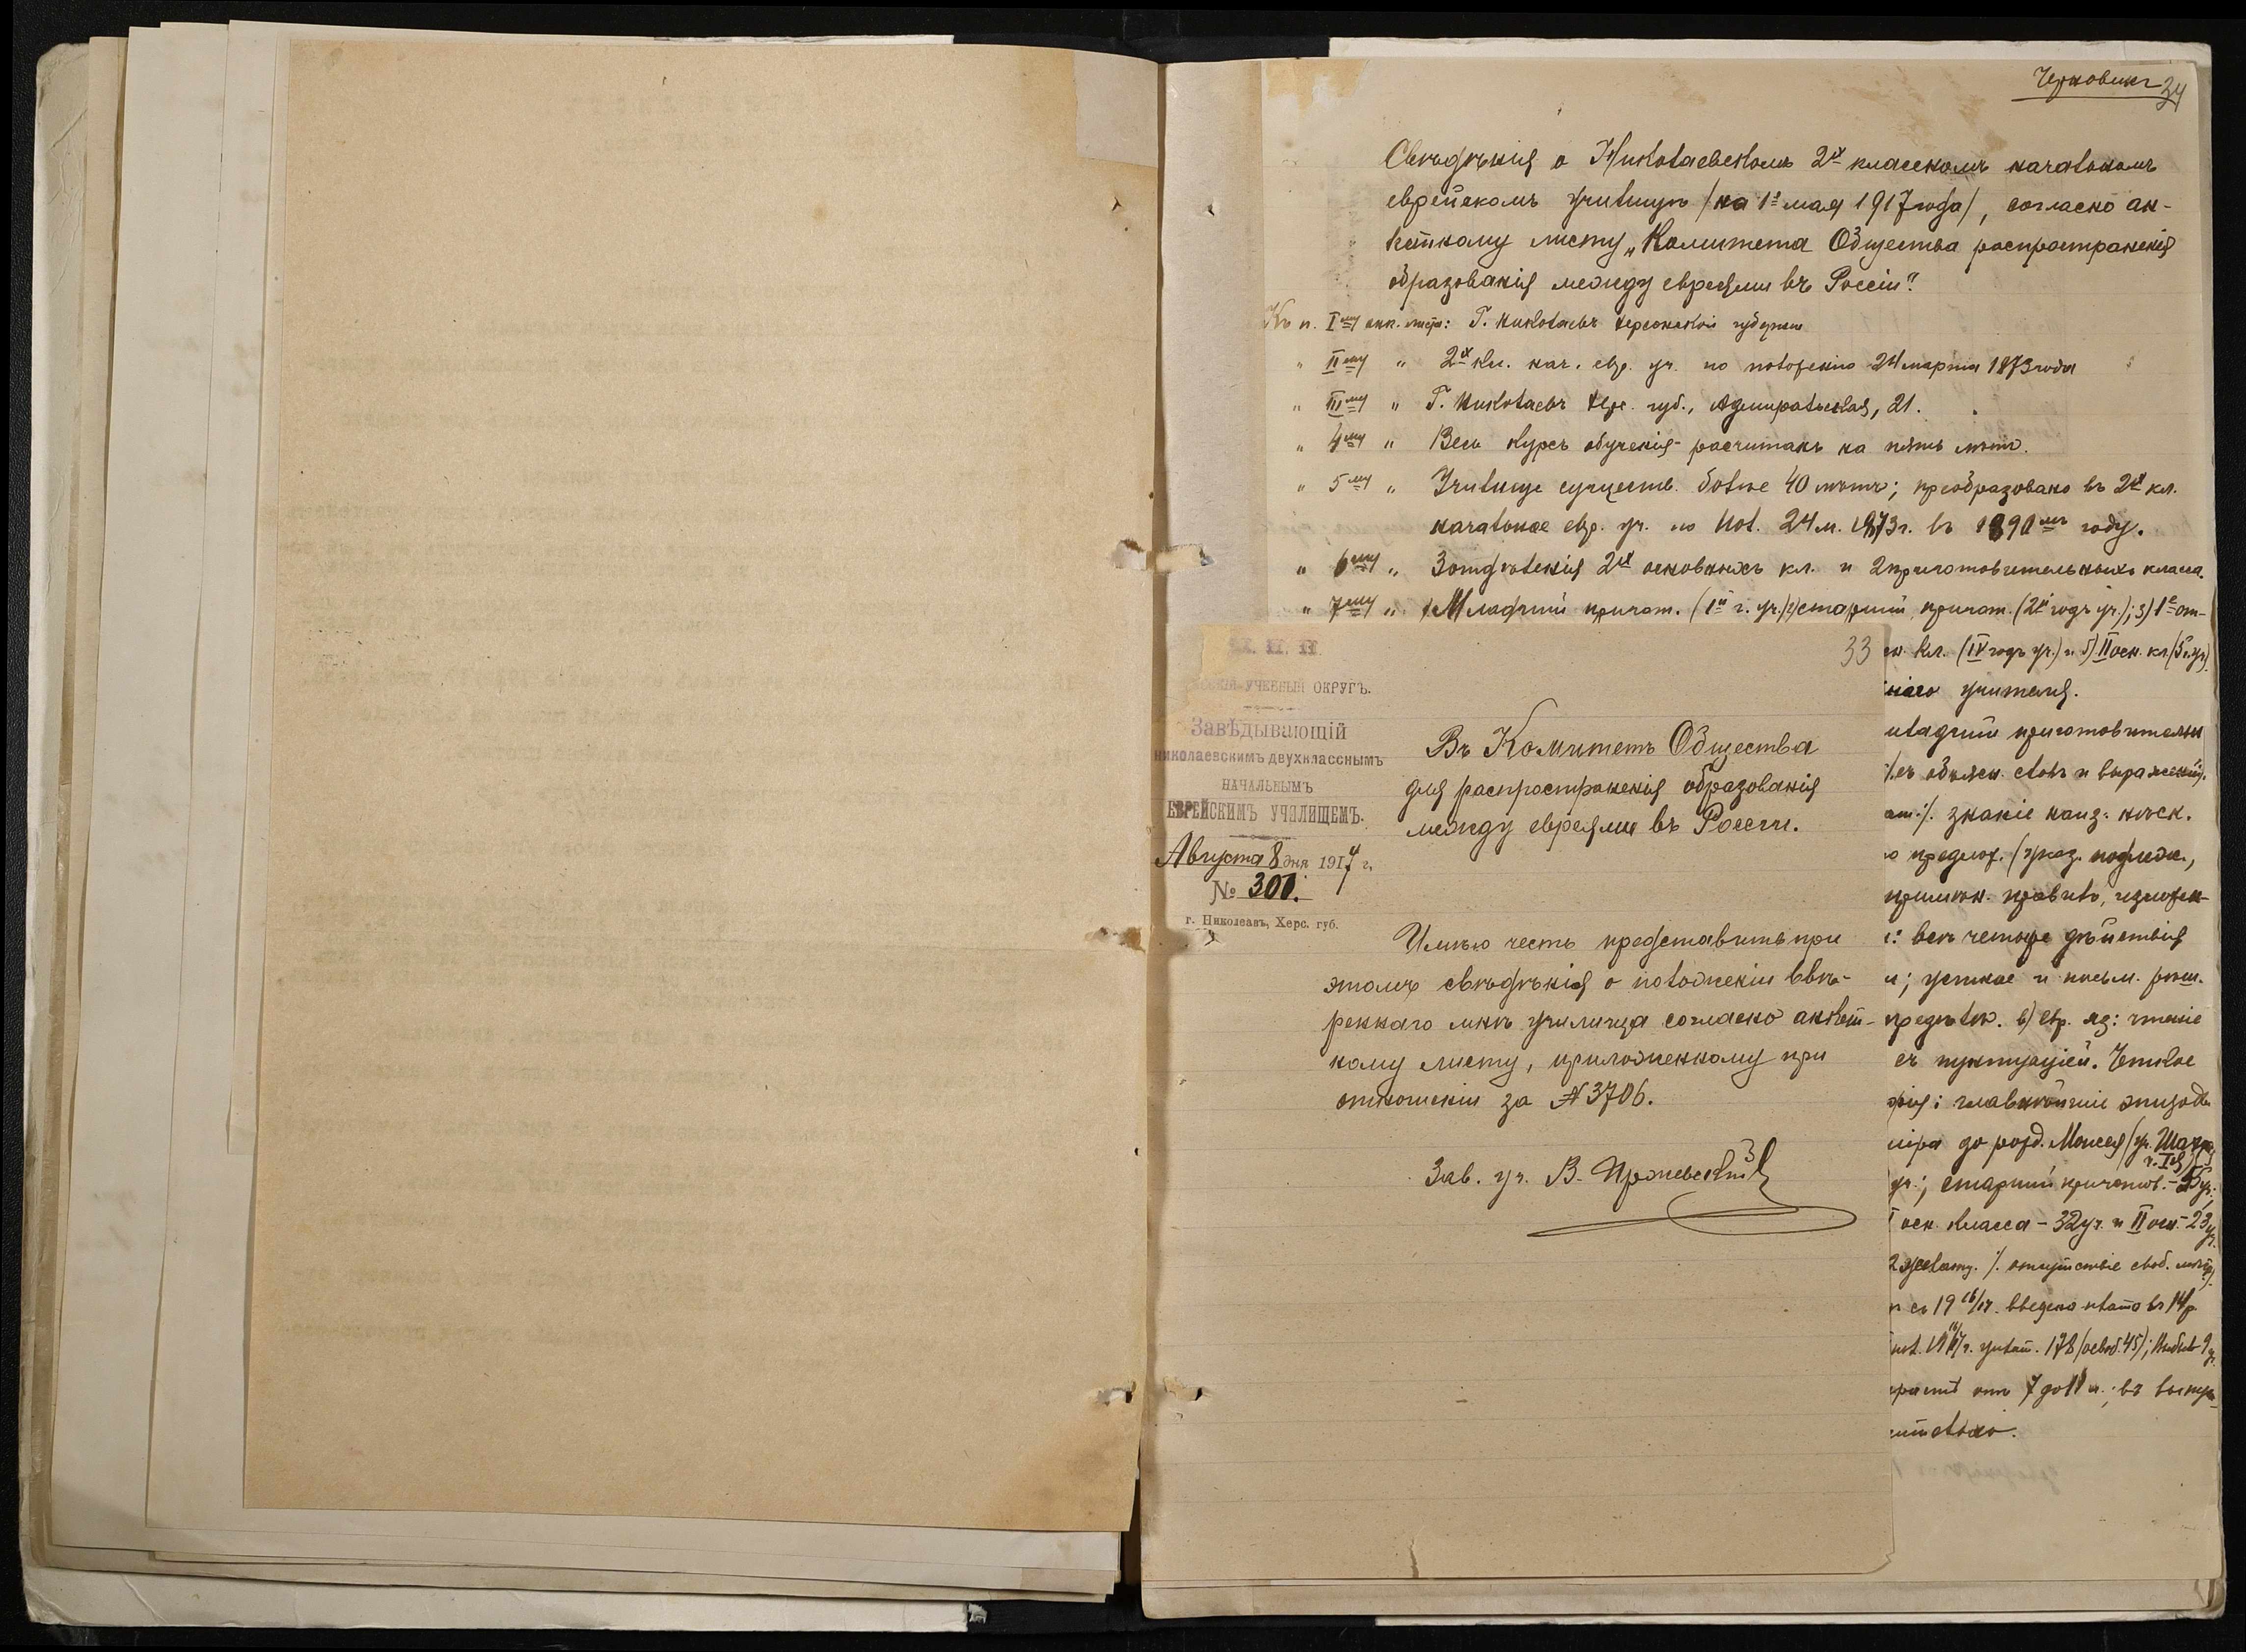 Черновикъ
34
Свѣдѣнія о Николаевскомъ 2хъ классномъ начальномъ
еврейскомъ училищѣ /на 1е мая 1917 года/, согласно ан-
кетному листу „Комитета Общества распространенія
образованія между евреями въ Россіи".
Къ п. Iму анк. листа: Г. Николаевъ Херсонской губерніи
„ IIму „ 2хъ кл. нач. евр. уч. по положенію 24 марта 1873 года
„ IIIму „ Г. Николаевъ Херс. губ., Адмиральская, 21.
„ 4му „ Весь курсъ обученія расчитанъ на пять лѣтъ.
„ 5му „ Училище существ. болѣе 40 лѣтъ; преобразовано въ 2хъ кл.
начальное евр. уч. по пол. 24 м. 1873 г. въ 1890мъ году.
„ 6му „ 3 отдѣленія 2хъ основныхъ кл. и 2 приготовительныхъ класса.
„ 7му „ 1) Младшій пригот. (1й г. уч.) 2) старшій пригот. (2й годъ уч.); 3) 1е от-
сн. кл. (IV годъ уч.) и 5) II осн. кл. (5 г. уч.)
няго учителя.
младшій приготовительн
съ объясн. словъ и выраженій.
знаніе наиз. нѣск.
предлож. (указ. подлеж.,
примѣн. правилъ, изложен-
: всѣ четыре дѣйствія
и; устное и письм. рѣш.
предѣлѣ. в) евр. яз: чтеніе
съ пунктуаціей. Чтеніе
рія: главнѣйшіе эпизоды
міра до рожд. Моисея (уч. Шахра
ч. Iя)
уч.; старшій приготов. -
осн. класса - 32 уч. и II осн. - 23 уч.
отсутствіе своб. мѣстъ).
съ 1916/17. введена плата въ 14 р.
1916/17 г. уплат. 178 (освоб. 45); выбыв. 9 уч.
отъ 7 до 11 л.; въ выпуск-
33
М. Н. П.
УЧЕБНЫЙ ОКРУГЪ.
Завѣдывающій
николаевскимъ двухкласснымъ
НАЧАЛЬНЫМЪ
ЕВРЕЙСКИМЪ УЧИЛИЩЕМЪ.
Августа 8 дня 1917 г.
№ 301.
г. Николаевъ, Херс. губ.
Въ Комитетъ Общества
для распространенія образованія
между евреями въ Россіи.
Имѣю честь представить при
этомъ свѣдѣнія о положеніи ввѣ-
реннаго мнѣ училища согласно анкет-
ному листу, приложенному при
отношеніи за № 3706.
Зав. уч. В. Пржевескій